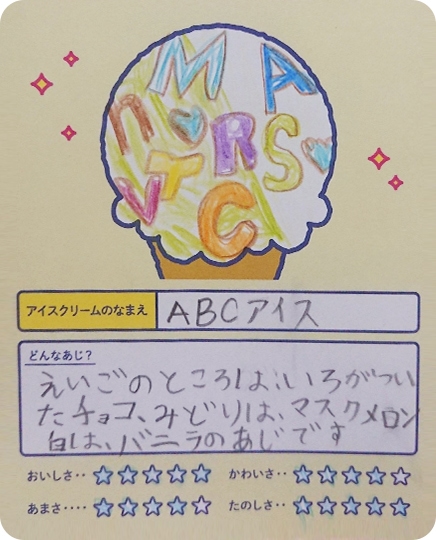 M A
n R S
T
V C
アイスクリームのなまえ ABCアイス
どんなあじ？
えいごのところは、いろがつい
たチョコ、みどりは、マスクメロン
白は、バニラのあじです
おいしさ‥ ☆☆☆☆☆ かわいさ‥ ☆☆☆☆☆
あまさ‥‥ ☆☆☆☆☆ たのしさ‥ ☆☆☆☆☆